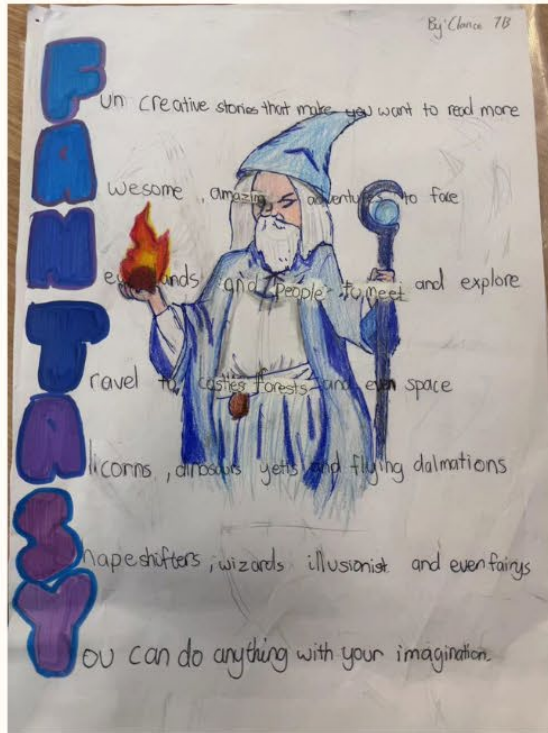 By: Clance 7B
Fun creative stories that make you want to read more
Awesome, amazing adventures to face
New lands and people to meet and explore
Travel to castles forests and even space
Alicorns, dinosaurs yetis and flying dalmations
Shapeshifters, wizards illusionist and even fairys
You can do anything with your imagination.